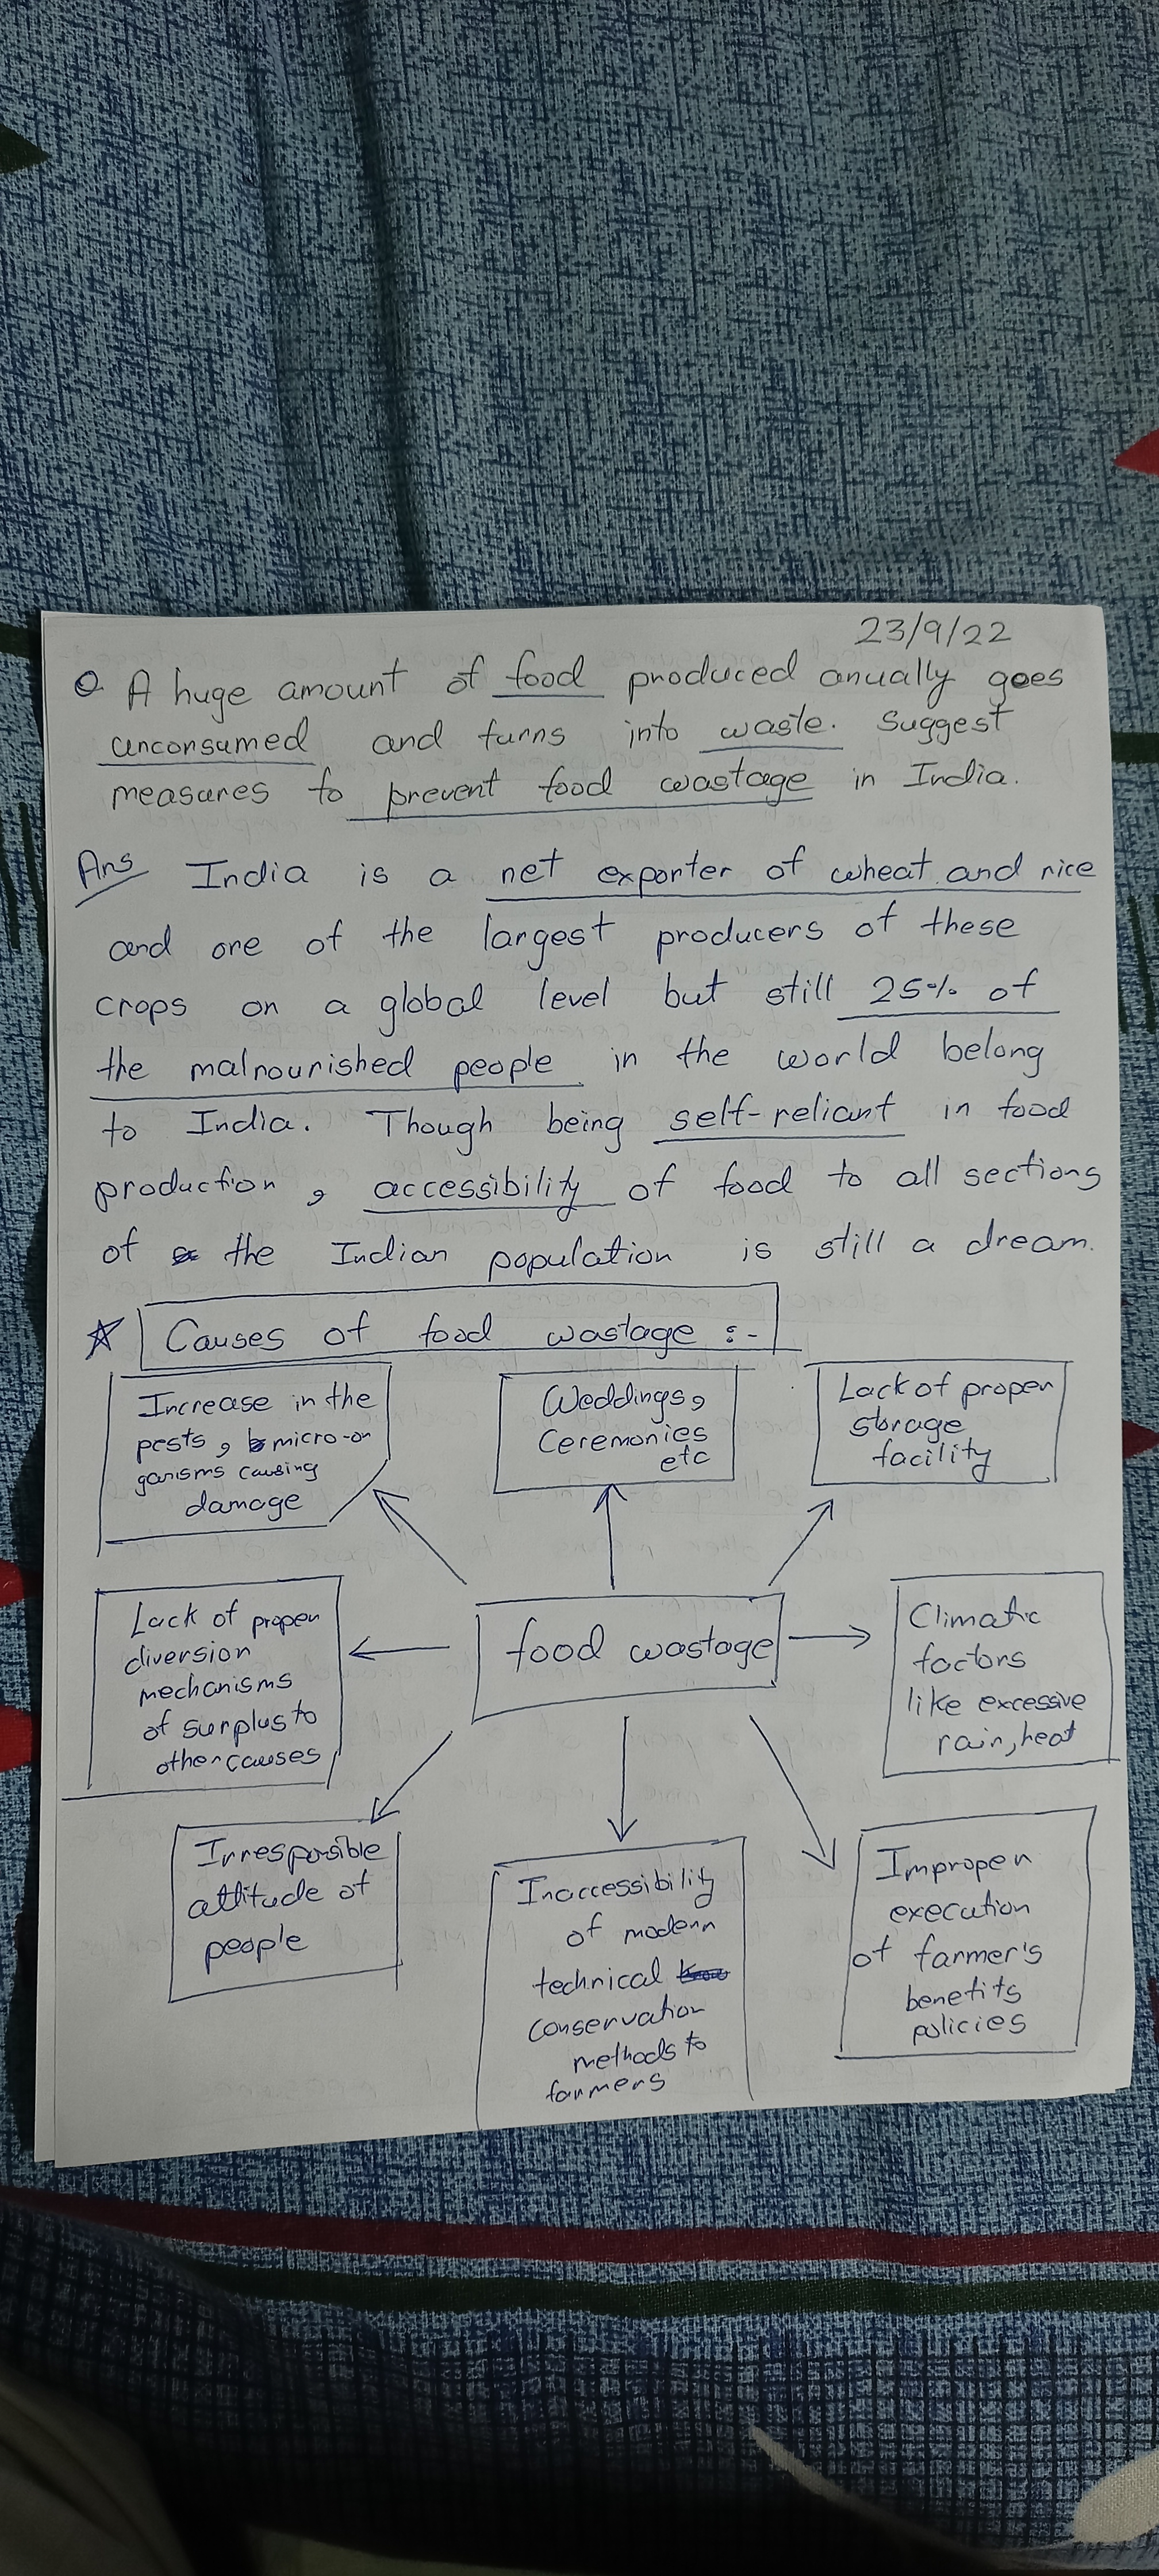 23/9/22
Q A huge amount of food produced anually goes
unconsumed and turns into waste. Suggest
measures to prevent food wastage in India.
Ans India is a net exporter of wheat and rice
and one of the largest producers of these
crops on a global level but still 25% of
the malnourished people in the world belong
to India. Though being self-reliant in food
production, accessibility of food to all sections
of the Indian population is still a dream.
Causes of food wastage :-
Increase in the
pests, micro-or
ganisms causing
damage
Weddings,
Ceremonies
etc
Lack of proper
storage
facility
Lack of proper
diversion
mechanisms
of surplus to
other causes
food wastage
Climatic
factors
like excessive
rain, heat
Irresposible
attitude of
people
Inaccessibility
of modern
technical
conservation
methods to
farmers
Improper
execution
of farmer's
benefits
policies